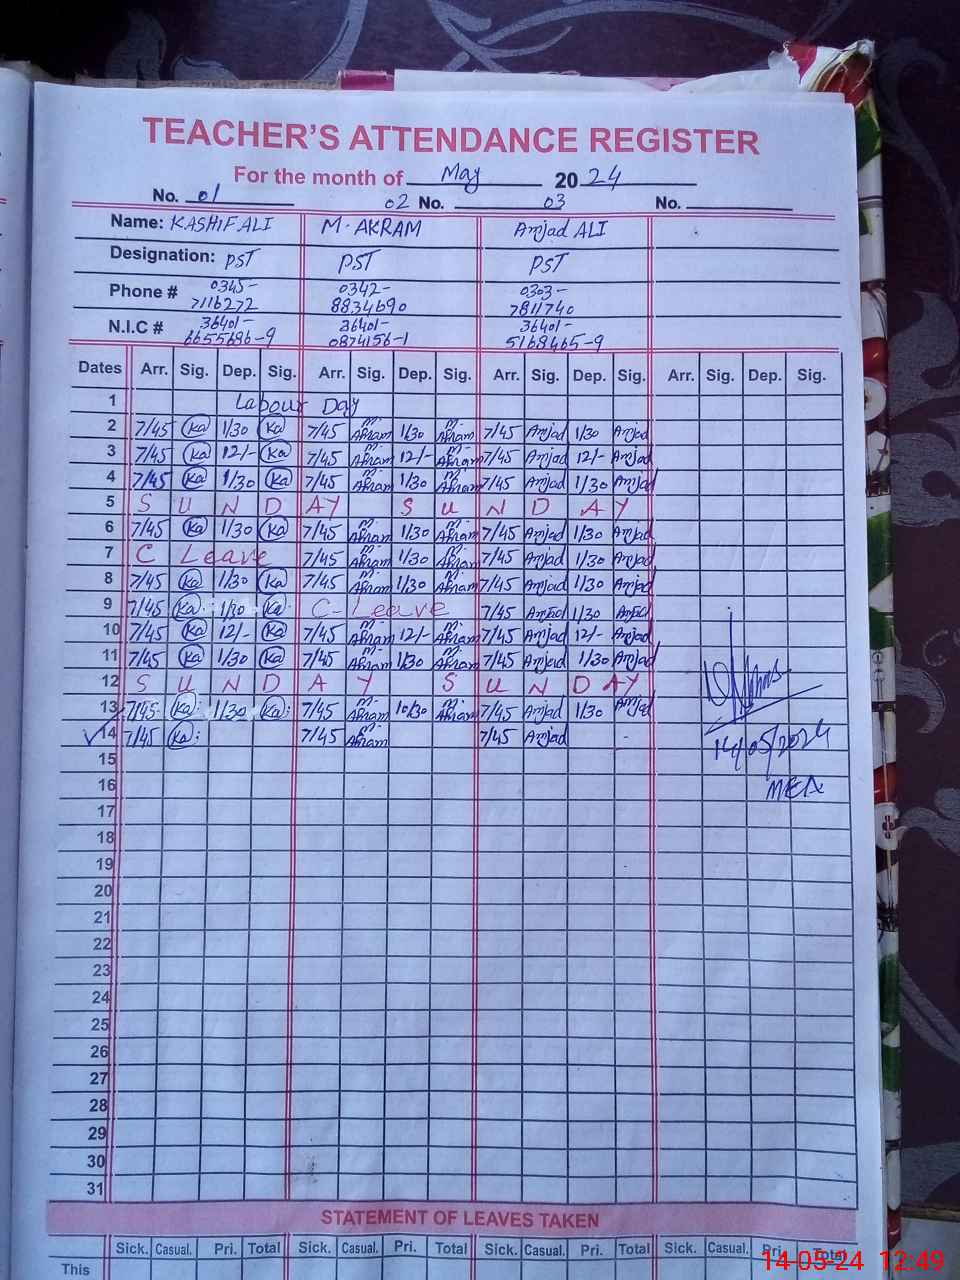 TEACHER'S ATTENDANCE REGISTER
For the month of May 2024
No. 01 02 No. 03 No.
Name: KASHIF ALI M. AKRAM Amjad ALI
Designation: PST PST PST
Phone # 0345- 0342- 0303-
7116272 8834690 7811740
N.I.C # 36401- 36401- 36401-
6655686-9 0874156-1 5168465-9
Dates Arr. Sig. Dep. Sig. Arr. Sig. Dep. Sig. Arr. Sig. Dep. Sig. Arr. Sig. Dep. Sig.
1 Labour Day
2 7/45 Ka 1/30 Ka 7/45 M. Akram 1/30 M. Akram 7/45 Amjad 1/30 Amjad
3 7/45 Ka 12/- Ka 7/45 M. Akram 12/- M. Akram 7/45 Amjad 12/- Amjad
4 7/45 Ka 1/30 Ka 7/45 M. Akram 1/30 M. Akram 7/45 Amjad 1/30 Amjad
5 S U N D A Y S U N D A Y
6 7/45 Ka 1/30 Ka 7/45 M. Akram 1/30 M. Akram 7/45 Amjad 1/30 Amjad
7 C Leave 7/45 M. Akram 1/30 M. Akram 7/45 Amjad 1/30 Amjad
8 7/45 Ka 1/30 Ka 7/45 M. Akram 1/30 M. Akram 7/45 Amjad 1/30 Amjad
9 7/45 Ka Ka C-Leave 7/45 Amjad 1/30 Amjad
10 7/45 Ka 12/- Ka 7/45 M. Akram 12/- M. Akram 7/45 Amjad 12/- Amjad
11 7/45 Ka 1/30 Ka 7/45 M. Akram 1/30 M. Akram 7/45 Amjad 1/30 Amjad
12 S U N D A Y S U N D A Y
13 7/45 Ka 1/30 Ka 7/45 M. Akram M. Akram 7/45 Amjad 1/30 Amjad
14 7/45 Ka 7/45 M. Akram 7/45 Amjad
14/05/2024
15
MEA
16
17
18
19
20
21
22
23
24
25
26
27
28
29
30
31
STATEMENT OF LEAVES TAKEN
Sick. Casual. Pri. Total Sick. Casual. Pri. Total Sick. Casual. Pri. Total Sick. Casual. Pri. Total
This
14-05-24 12:49